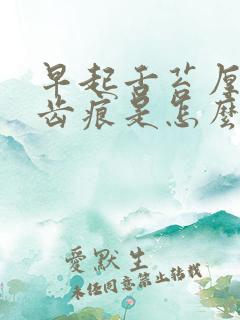 早起舌苔厚
齿痕是怎麼
愛默生
未经同意禁止转载